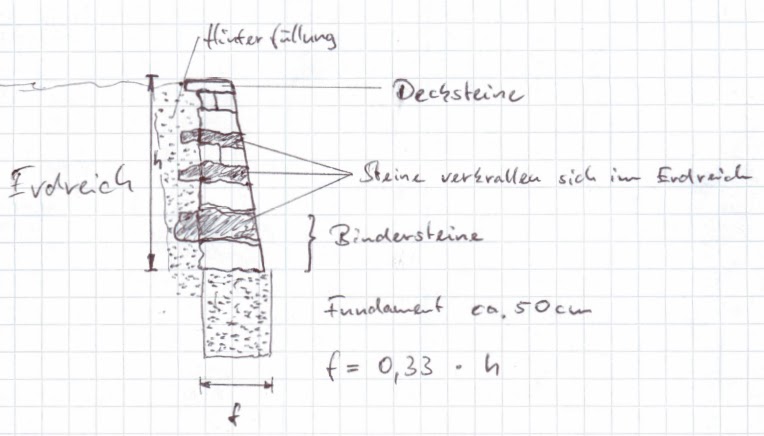 Hinterfüllung
Decksteine
h
Erdreich
Steine verkrallen sich im Erdreich
Bindersteine
Fundament ca. 50cm
f = 0,33 · h
f